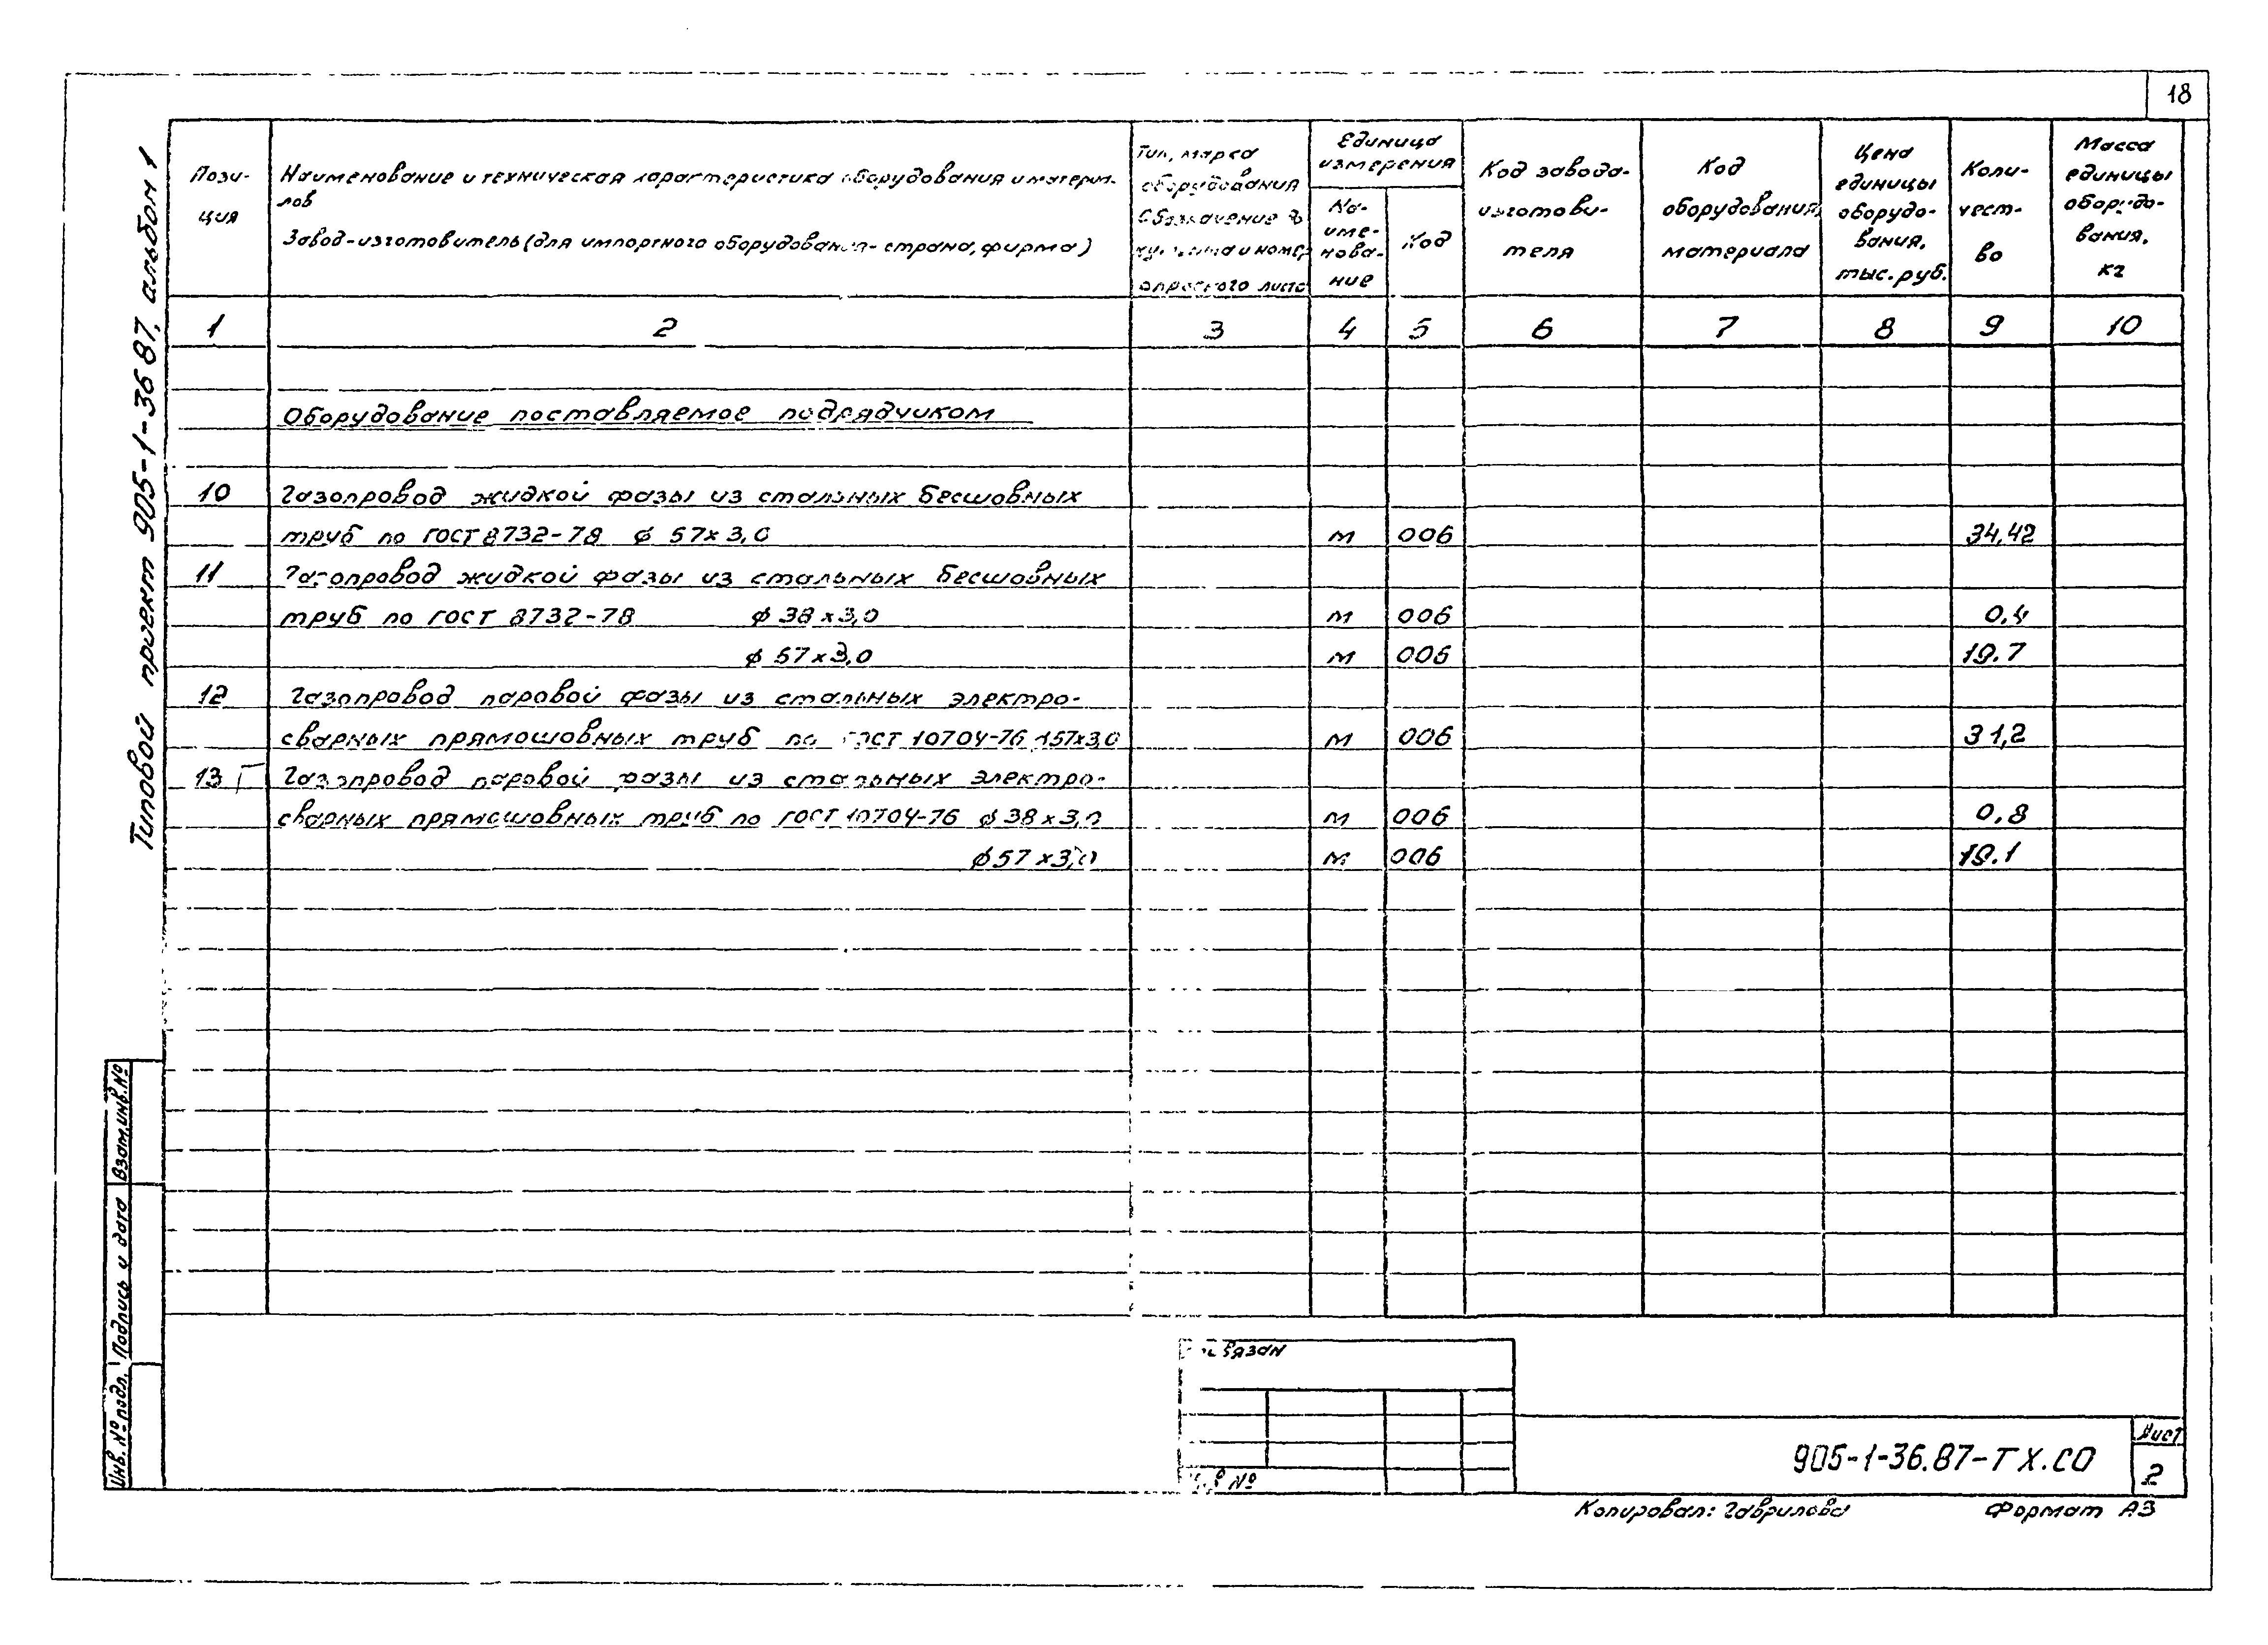 18
Типовой проект 905-1-36 87, альбом 1
Пози-
ция
Наименование и техническая характеристика оборудования и материа-
лов
Завод-изготовитель (для импортного оборудования- страна, фирма)
Тип, марка
оборудования
Обозначение
и номер
опросного листа
Единица
измерения
На-
име-
нова-
ние
Код
Код завода-
изготови-
теля
Код
оборудования,
материала
Цена
единицы
оборудо-
вания,
тыс. руб.
Коли-
чест-
во
Масса
единицы
оборудо-
вания,
кг
1 2 3 4 5 6 7 8 9 10
Оборудование поставляемое подрядчиком
10 Газопровод жидкой фазы из стальных бесшовных
труб по ГОСТ 8732-78 ф 57х3,0 м 006 34,42
11 Газопровод жидкой фазы из стальных бесшовных
труб по ГОСТ 8732-78 ф 38х3,0 м 006 0,4
ф 57х3,0 м 006 19.7
12 Газопровод паровой фазы из стальных электро-
сварных прямошовных труб по ГОСТ 10704-76 157х3,0 м 006 31,2
13 Газопровод паровой фазы из стальных электро-
сварных прямошовных труб по ГОСТ 10704-76 ф 38х3,0 м 006 0,8
ф 57х3,0 м 006 19.1
Взам.инв.№
Подпись и дата
Инв. № подл.
Привязан
Инв №
905-1-36.87-ТХ.СО
Лист
2
Копировал: Гаврилова Формат А3